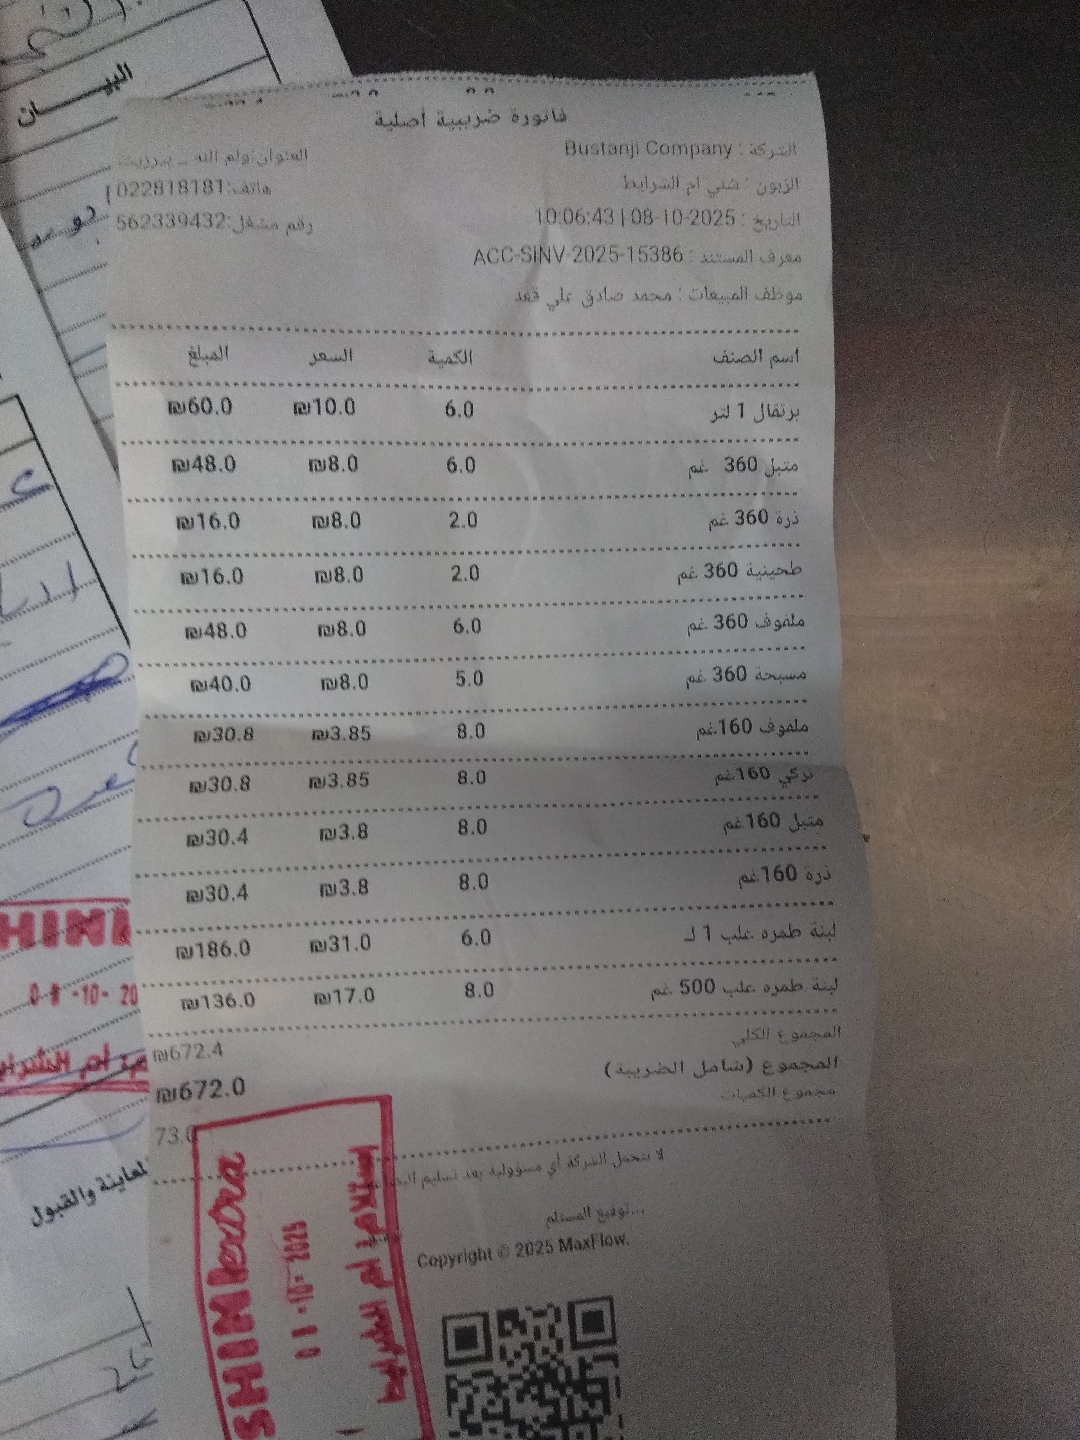 البيــــــان
فاتورة ضريبية أصلية
الشركة : Bustanji Company
العنوان:رام الله _ بيرزيت
الزبون : شني ام الشرايط
هاتف:022818181
التاريخ : 08-10-2025 | 10:06:43
رقم مشغل:562339432
معرف المستند : ACC-SINV-2025-15386
موظف المبيعات : محمد صادق علي قعد
اسم الصنف الكمية السعر المبلغ
برتقال 1 لتر 6.0 ₪10.0 ₪60.0
متبل 360 غم 6.0 ₪8.0 ₪48.0
ذرة 360 غم 2.0 ₪8.0 ₪16.0
طحينية 360 غم 2.0 ₪8.0 ₪16.0
ملفوف 360 غم 6.0 ₪8.0 ₪48.0
مسبحة 360 غم 5.0 ₪8.0 ₪40.0
ملفوف 160غم 8.0 ₪3.85 ₪30.8
تركي 160غم 8.0 ₪3.85 ₪30.8
متبل 160غم 8.0 ₪3.8 ₪30.4
ذرة 160غم 8.0 ₪3.8 ₪30.4
لبنة طمره علب 1 ك 6.0 ₪31.0 ₪186.0
لبنة طمره علب 500 غم 8.0 ₪17.0 ₪136.0
المجموع الكلي ₪672.4
المجموع (شامل الضريبة) ₪672.0
مجموع الكميات 73.0
لا تتحمل الشركة أي مسؤولية بعد تسليم
توقيع المستلم...
Copyright © 2025 MaxFlow.
SHINI extra
-10- 2025
استلام ام الشرايط
HINI
-10- 20
ام الشراي
والقبول